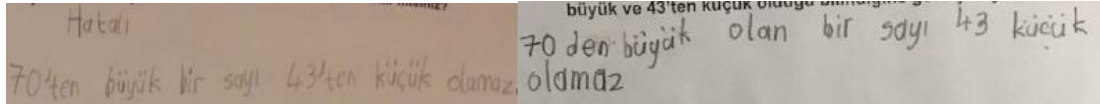 Hatalı
70'ten büyük bir sayı 43'ten küçük olamaz.
büyük ve 43'ten küçük olduğu
70 den büyük olan bir sayı 43 küçük
olamaz